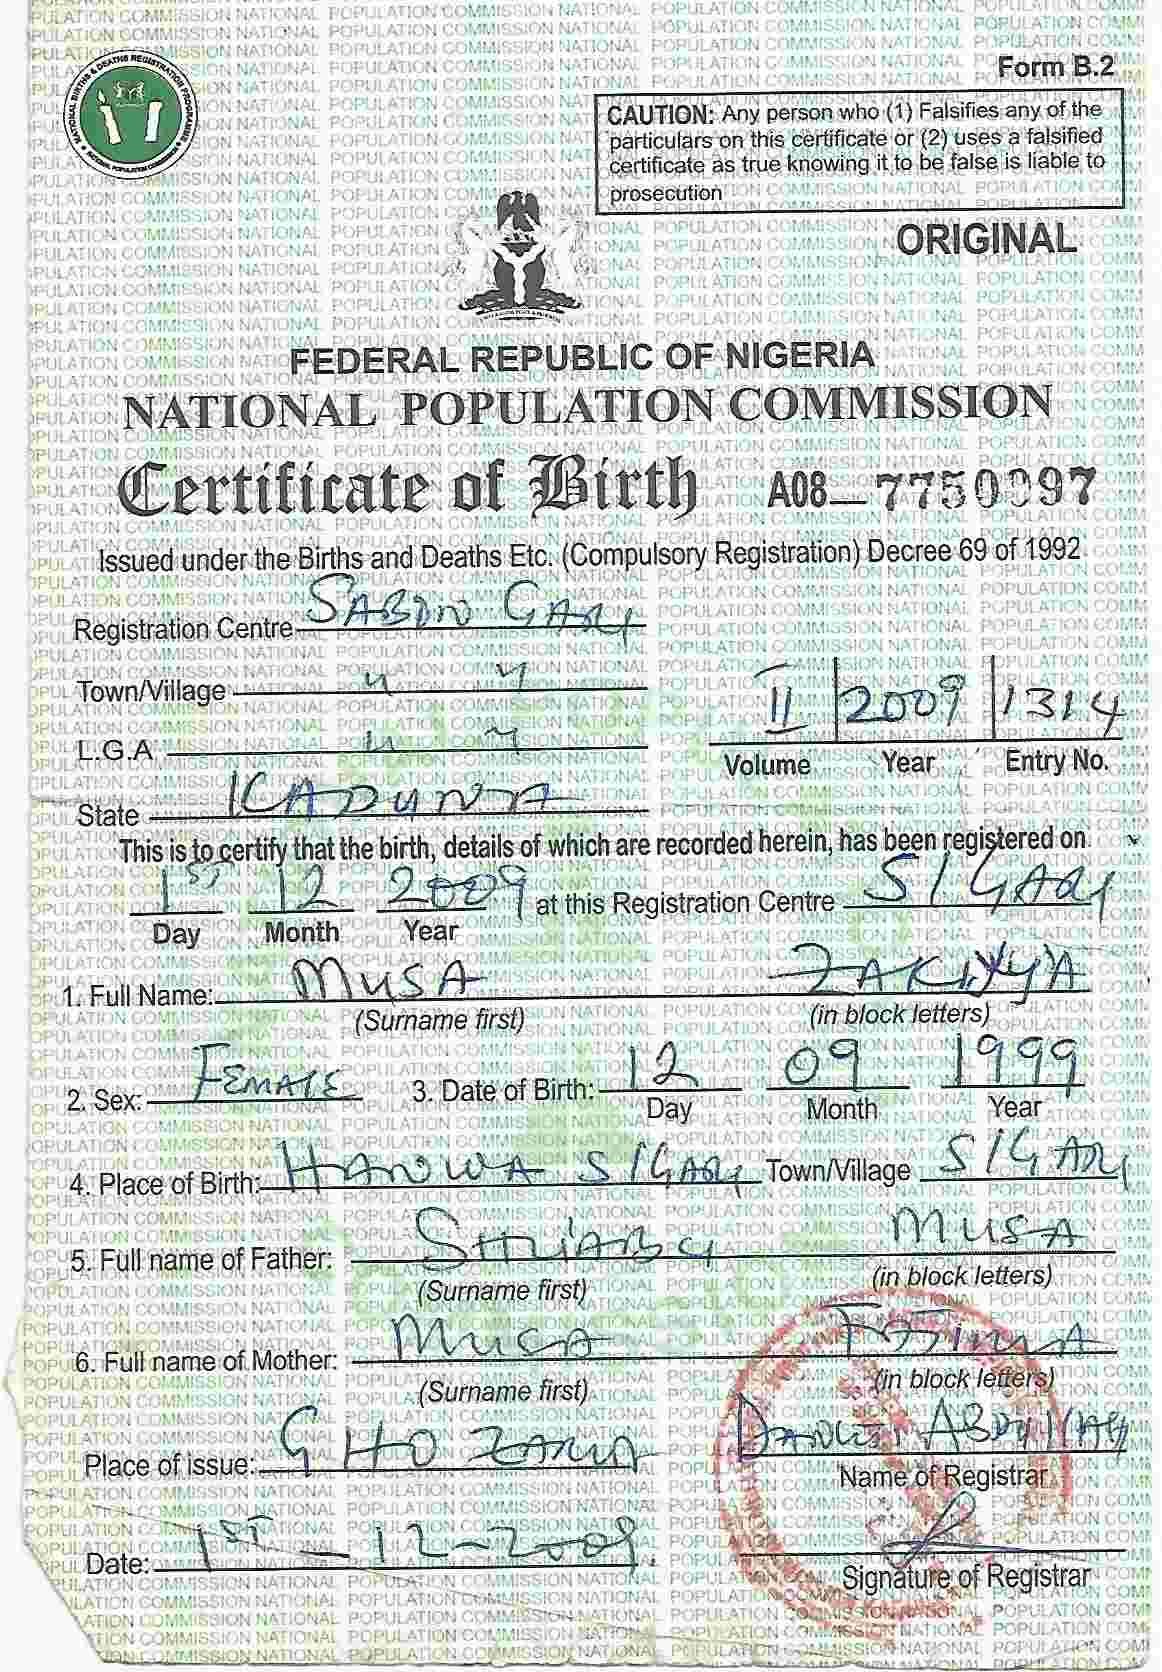 Form B.2
NATIONAL BIRTHS & DEATHS REGISTRATION PROGRAMME
NATIONAL POPULATION COMMISSION
CAUTION: Any person who (1) Falsifies any of the
particulars on this certificate or (2) uses a falsified
certificate as true knowing it to be false is liable to
prosecution
ORIGINAL
FEDERAL REPUBLIC OF NIGERIA
NATIONAL POPULATION COMMISSION
Certificate of Birth A08—7750997
Issued under the Births and Deaths Etc. (Compulsory Registration) Decree 69 of 1992
Registration Centre SABON GARI
Town/Village " "
L.G.A " "
II 2009 1314
Volume Year Entry No.
State KADUNA
This is to certify that the birth, details of which are recorded herein, has been registered on
1ST 12 2009 at this Registration Centre S/GARI
Day Month Year
1. Full Name: MUSA ZAKIYYA
(Surname first) (in block letters)
2. Sex: FEMALE 3. Date of Birth: 12 09 1999
Day Month Year
4. Place of Birth: HANWA S/GARI Town/Village S/GARI
5. Full name of Father: SHUAIBU MUSA
(Surname first) (in block letters)
6. Full name of Mother: MUSA FATIMA
(Surname first) (in block letters)
Place of issue: GHO ZARIA ABDULLAHI
Name of Registrar
Date: 1ST-12-2009
Signature of Registrar